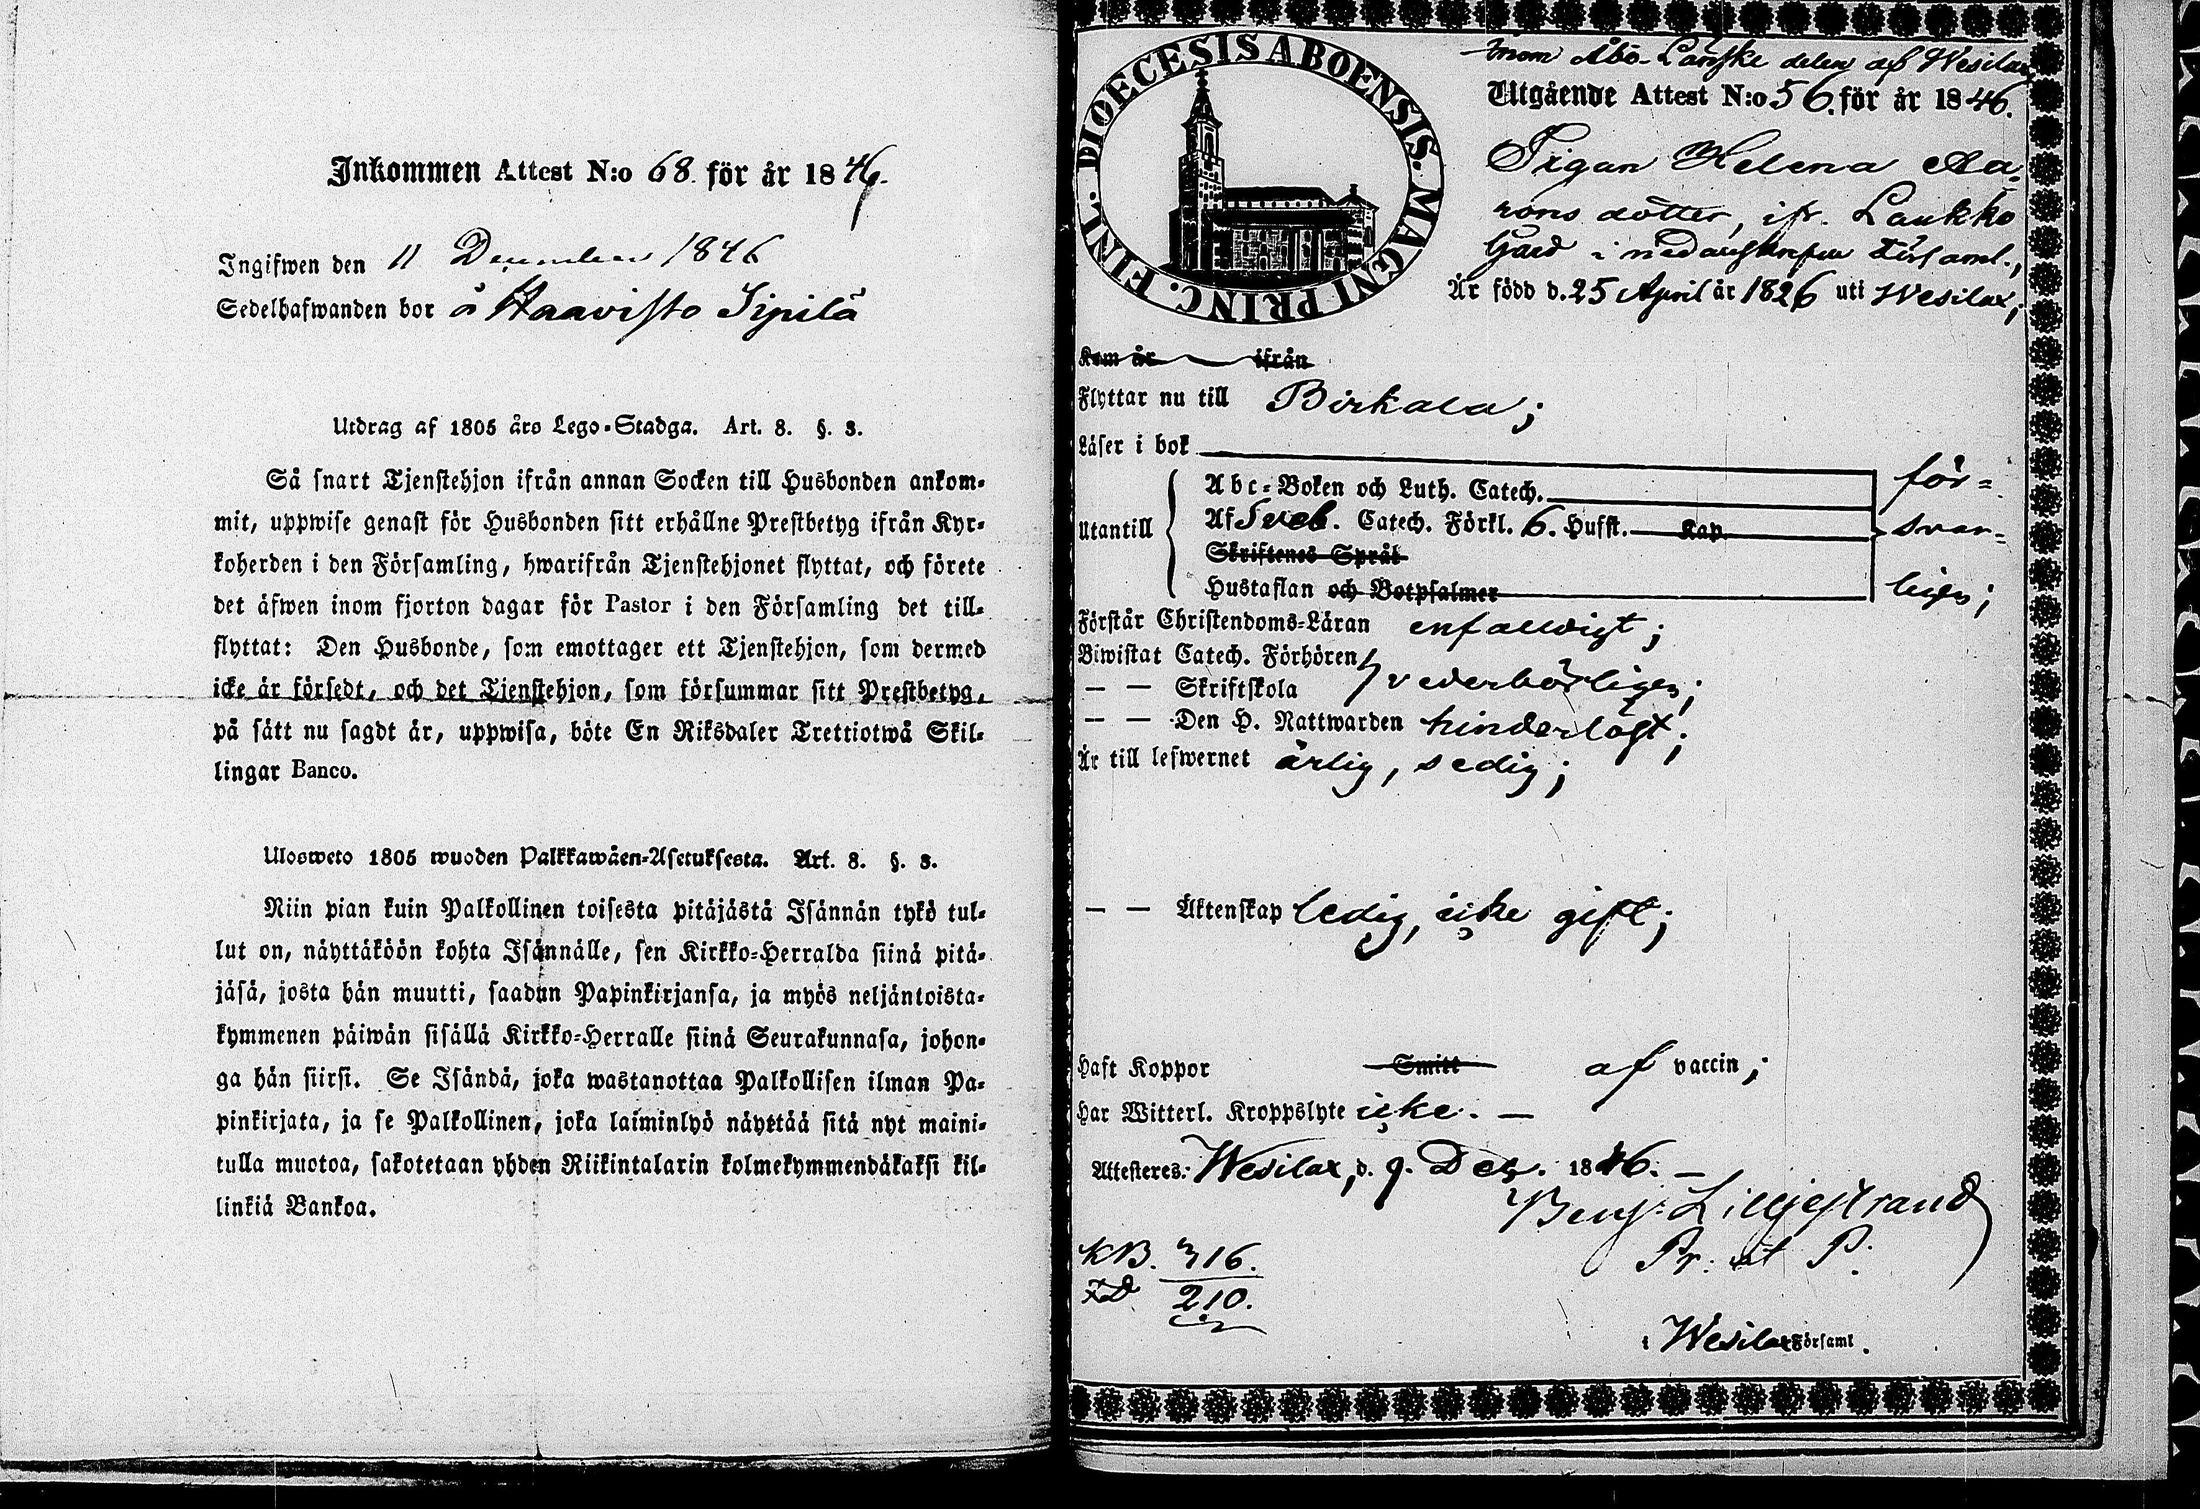 Inkommen Attest N:o 68. för år 1846.
Ingifwen den 11 December 1846
Sedelhafwanden bor å Haavisto Sipilä
Utdrag af 1805 års Lego-Stadga. Art. 8. §. 3.
Så snart Tjenstehjon ifrån annan Socken till Husbonden ankom-
mit, uppwise genast för Husbonden sitt erhållne Prestbetyg ifrån Kyr-
koherden i den Församling, hwarifrån Tjenstehjonet flyttat, och förete
det äfwen inom fjorton dagar för Pastor i den Församling det till-
flyttat: Den Husbonde, som emottager ett Tjenstehjon, som dermed
icke är försedt, och det Tjenstehjon, som försummar sitt Prestbetyg,
på sätt nu sagdt är, uppwisa, böte En Riksdaler Trettiotwå Skil-
lingar Banco.
Ulosweto 1805 wuoden Palkkawäen-Asetuksesta. Art. 8. §. 3.
Niin pian kuin Palkollinen toisesta pitäjästä Isännän tykö tul-
lut on, näyttäköön kohta Isännälle, sen Kirkko-Herralda siinä pitä-
jäsä, josta hän muutti, saadun Papinkirjansa, ja myös neljäntoista-
kymmenen päiwän sisällä Kirkko-Herralle siinä Seurakunnasa, johon-
ga hän siirsi. Se Isändä, joka wastanottaa Palkollisen ilman Pa-
pinkirjata, ja se Palkollinen, joka laiminlyö näyttää sitä nyt maini-
tulla muotoa, sakotetaan yhden Riikintalarin kolmekymmendäkaksi kil-
linkiä Bankoa.
DIOECESIS ABOENSIS. MAGNI PRINC. FINL.
Inom Åbo Länske delen af Wesilax
Utgående Attest N:o 56. för år 1846.
Pigan Helena Aa-
rons dotter, ifr. Laukko
Gård i nedanskrefne Församl.,
Är född d. 25 April år 1826 uti Wesilax;
Kom år ifrån
Flyttar nu till Birkala;
Läser i bok
Abc-Boken och Luth. Catech. för-
Utantill Af Sveb. Catech. Förkl. 6. Hufst. Kap. svar-
Skriftenes Språk
Hustaflan och Botpsalmer ligen;
Förstår Christendoms-Läran enfaldigt;
Biwistat Catech. Förhören
— — Skriftskola vederbörligen;
— — Den H. Nattwarden hinderlöst;
Är till lefwernet ärlig, sedig;
— — Äktenskap ledig, icke gift;
Haft Koppor Smitt af vaccin;
Har Witterl. Kroppslyte icke. —
Attesteres: Wesilax, d. 9. Dec. 1846. —
Benj. Lilljestrand
Pr. et P.
KB. 316.
210.
i Wesilax Församl.